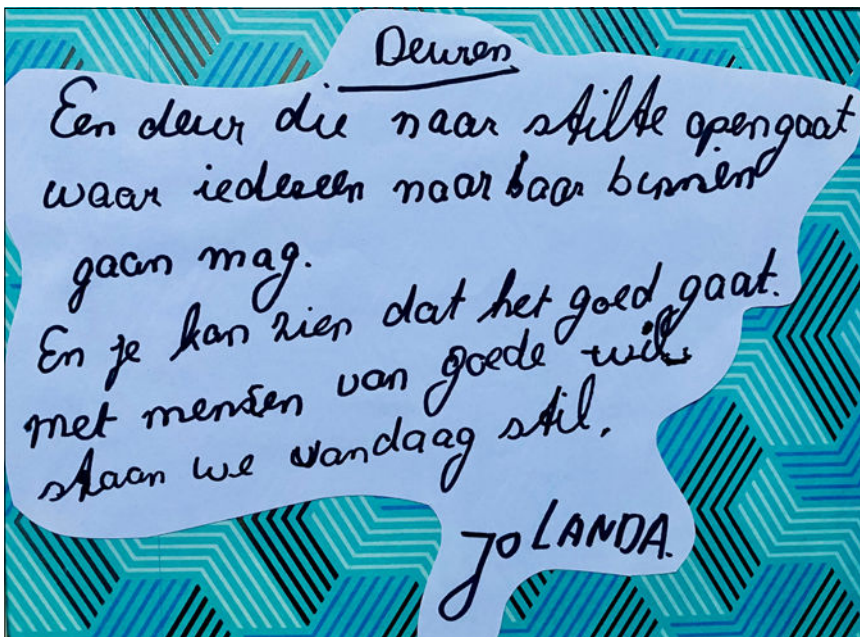 Deuren
Een deur die naar stilte opengaat
waar iedereen naar baar binnen
gaan mag.
En je kan zien dat het goed gaat.
met mensen van goede wil
staan we vandaag stil.
JOLANDA.